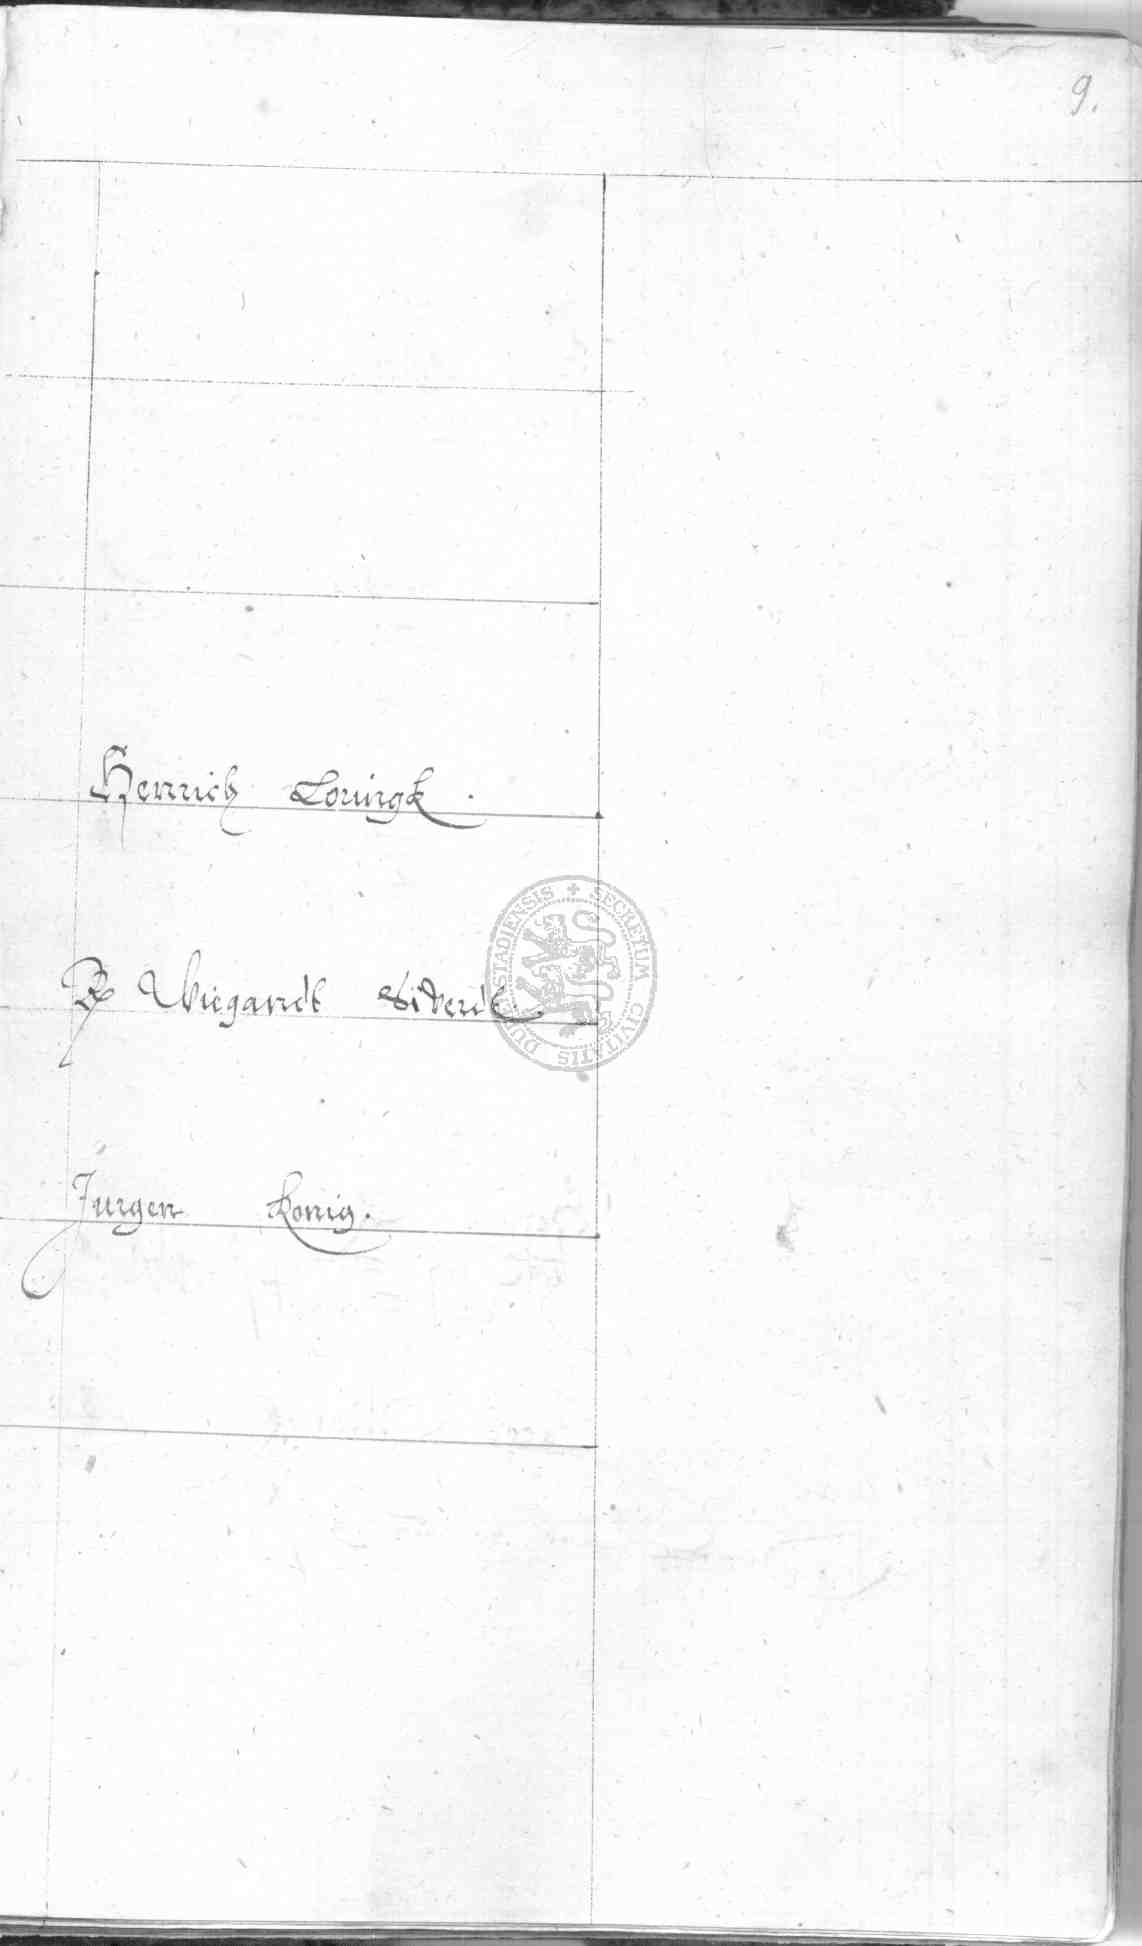 9.
Henrich Louingk.
Wiegandt Siverdt.
Jurgen Konig.
SECRETUM CIVITATIS DUDERSTADIENSIS